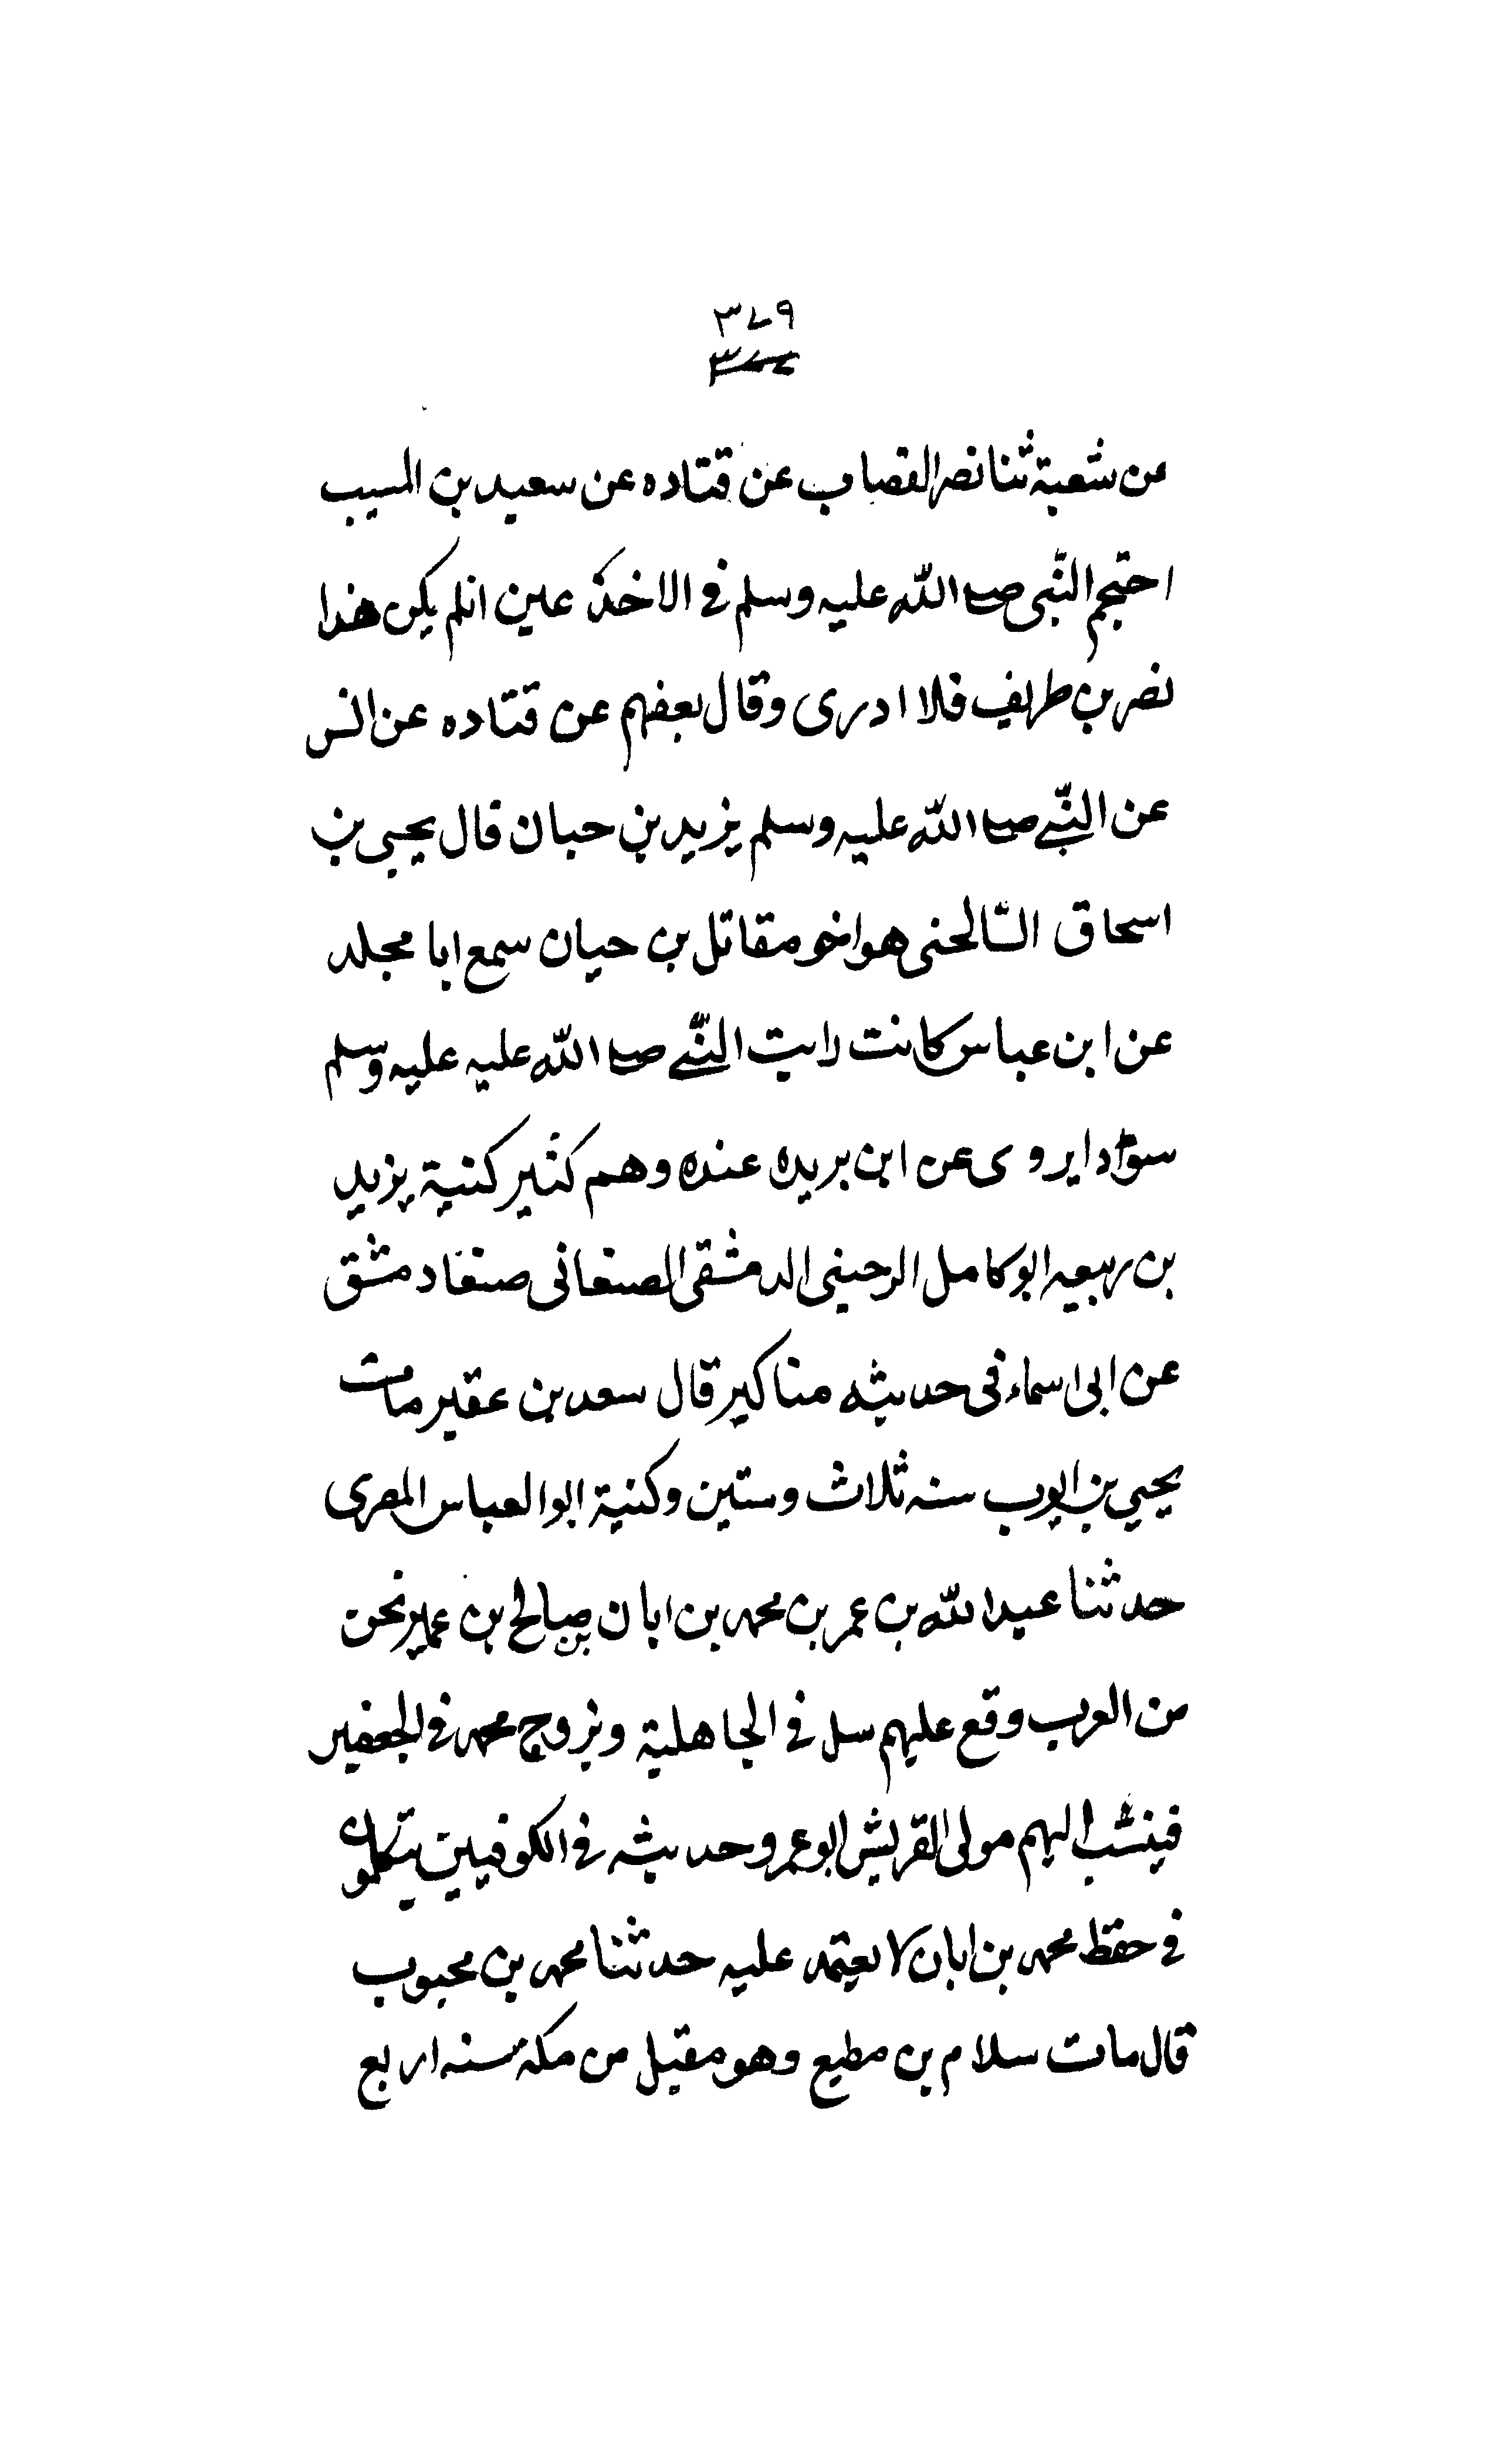 ٣٧٩
عن شعبة ثنا نصر القصاب عن قتاده عن سعيد بن المسيب
احتجم النبى صلى الله عليه وسلم فى الاخذ عين ان لم يكن هذا
نصر بن طريف فلا ادرى وقال بعضهم عن قتاده عن انس
عن النبى صلى الله عليه وسلم يزيد بن حبان قال يحيى بن
اسحاق السالحنى هو اخو مقاتل بن حيان سمع ابا مجلد
عن ابن عباس كانت رايت النبى صلى الله عليه عليه وسلم
سوادا يروى عن ابن بريده عنده وهم كثير كنية يزيد
بن ربيعه ابو كامل الرحبنى الدمشقى الصنعانى صنعا دمشق
عن ابى اسماء فى حديثه مناكير قال سعد بن عقير مات
يحيى بن ايوب سنه ثلاث وستين وكنية ابو العباس المصرى
حدثنا عبد الله بن عمر بن محمد بن ابان بن صالح بن عمير نحن
من العرب وقع عليهم سل فى الجاهلية وتزوج محمد فى الجعفير
فينسب اليهم مولى القريش ابو عمر وحديثه فى الكوفيين يتكلمون
فى حفظ محمد بن ابان لا يعتمد عليه حدثنا محمد بن محبوب
قال مات سلام بن مطيع وهو مقبل من مكة سنه اربع